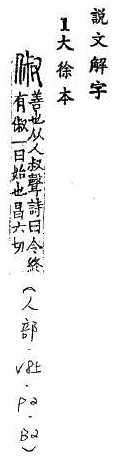 說文解字
1大徐本
俶善也从人叔聲詩曰令終
有俶一曰始也昌六切
(人部·V8上·P2·B2)